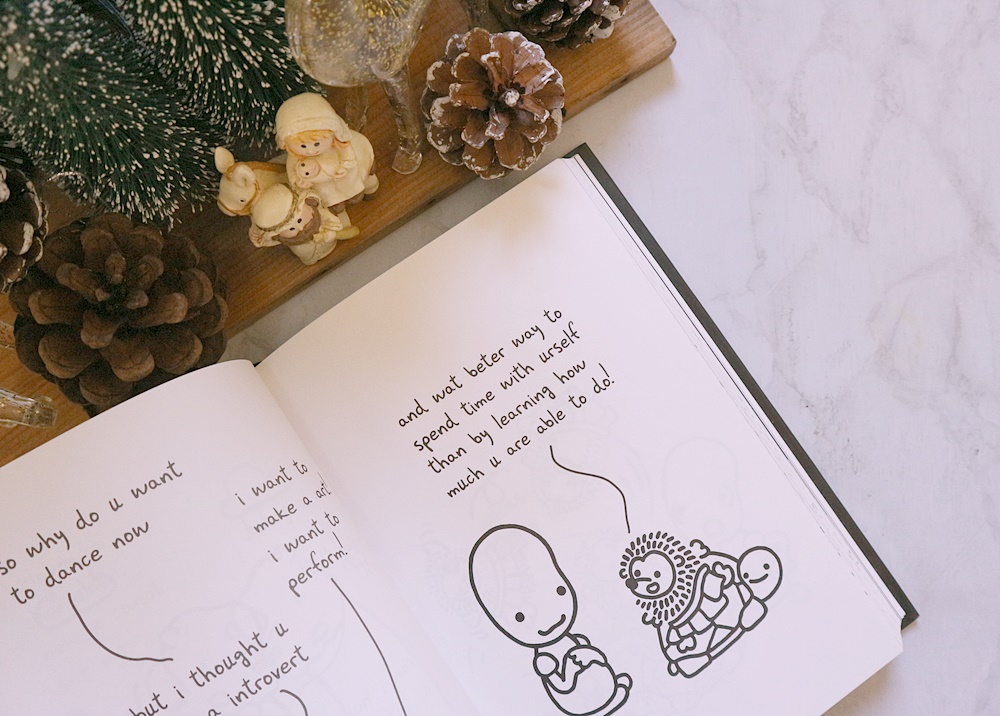 so why do u want
to dance now
i want to
make a art
i want to
perform!
but i thought u
a introvert
and wat beter way to
spend time with urself
than by learning how
much u are able to do!